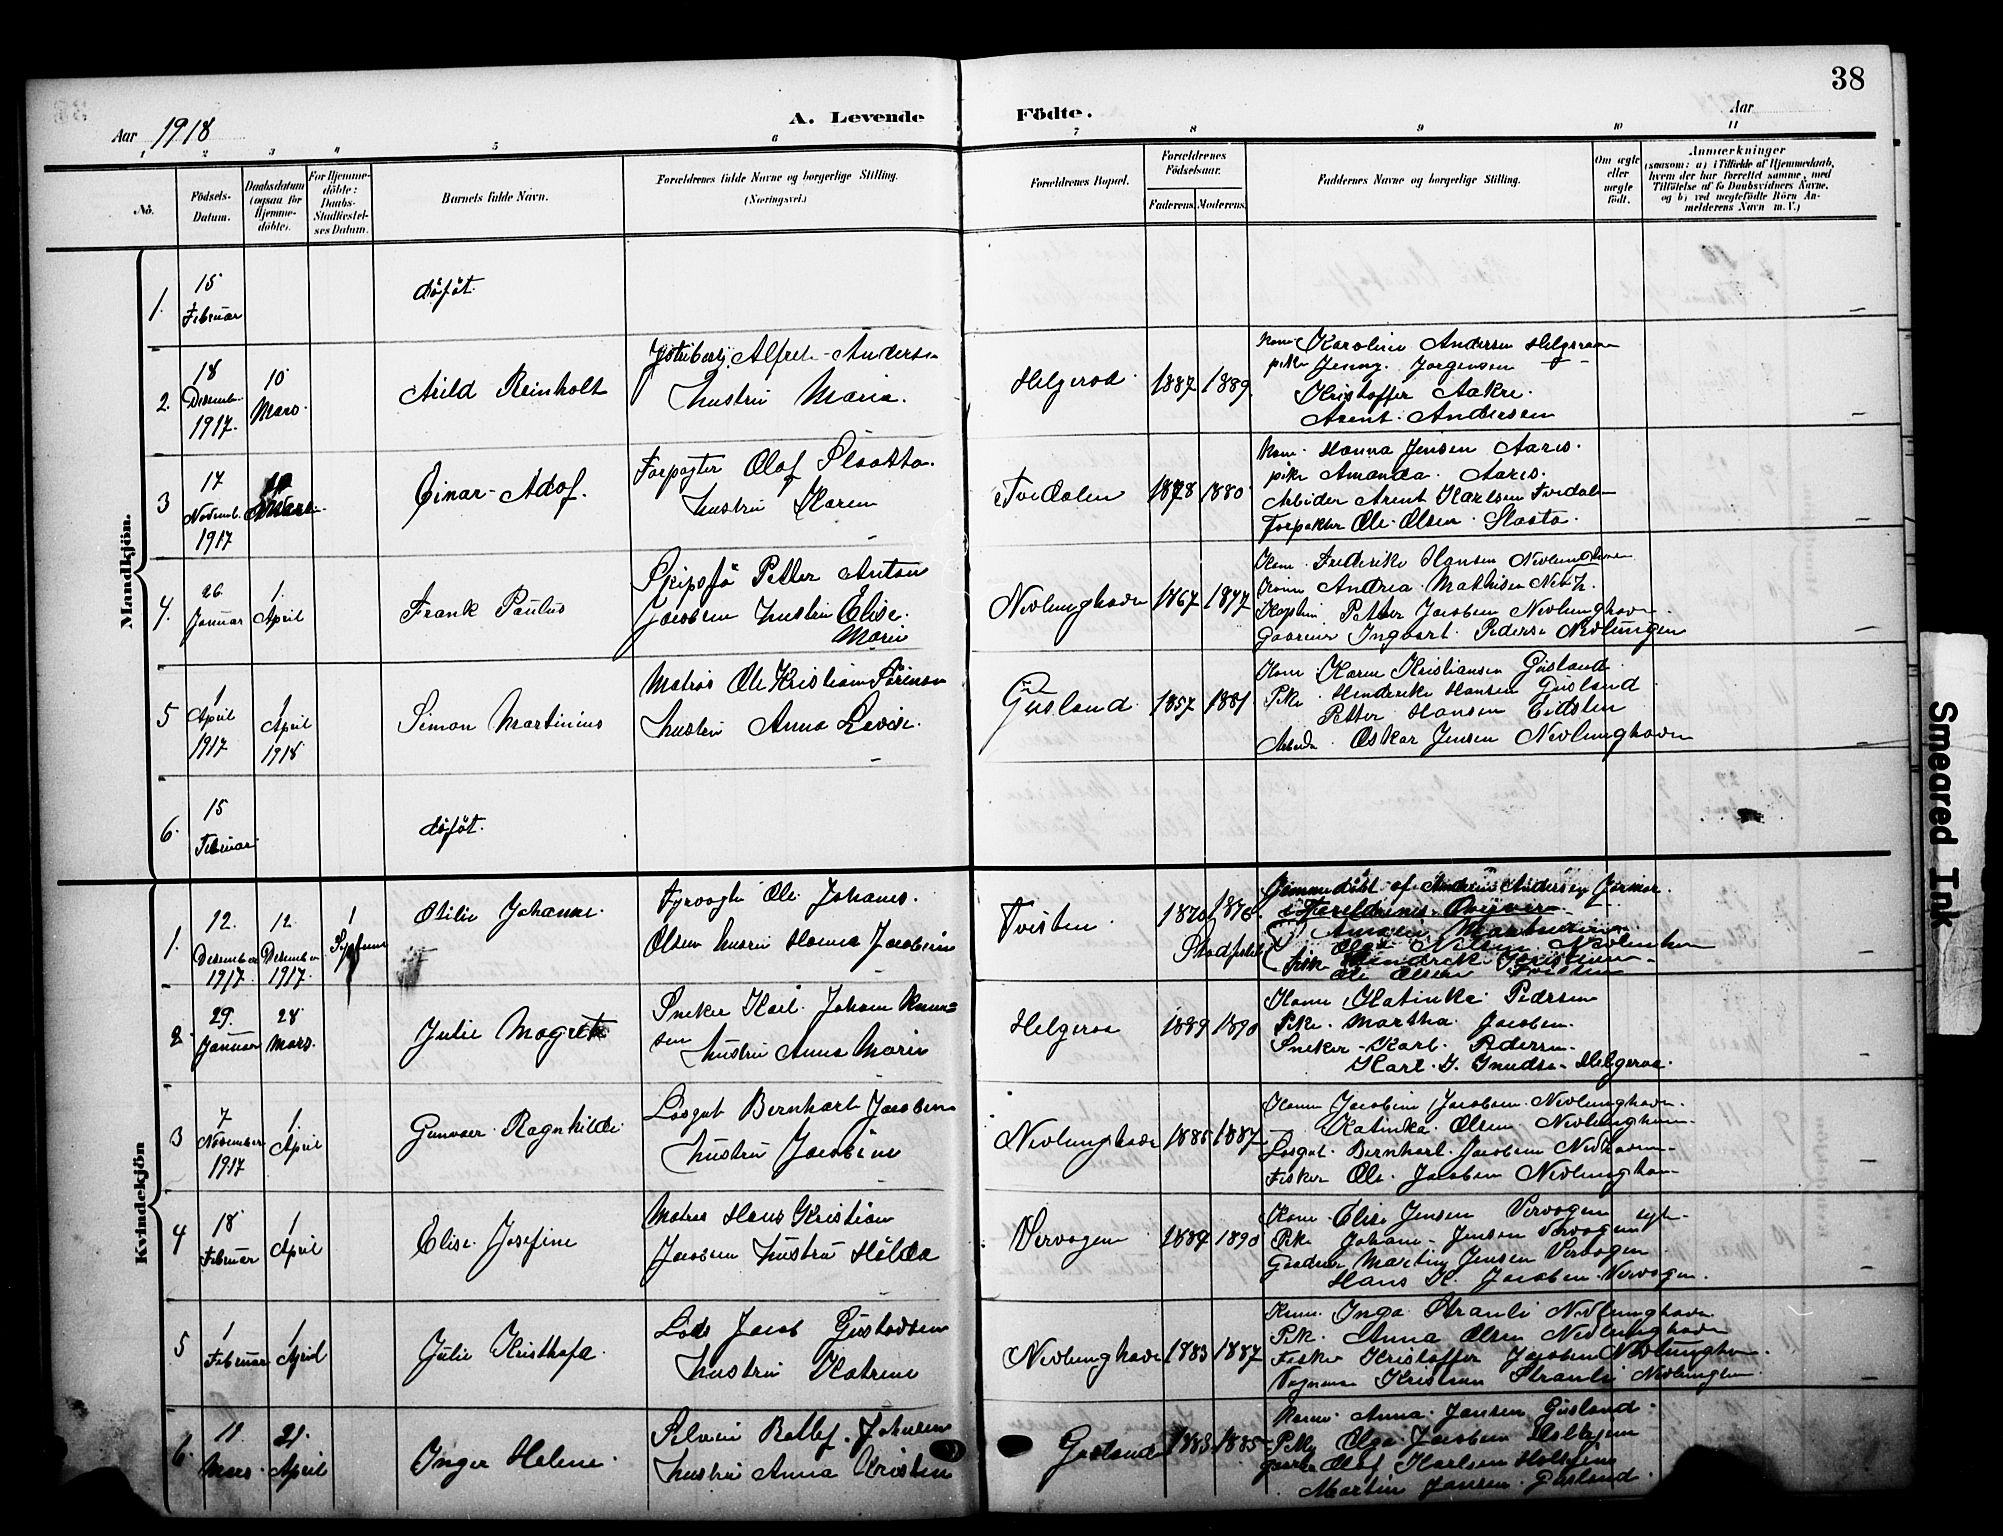 38
Aar 1918
A. Levende Födte.
Aar
1 2 3 4 5 6 7 8 9 10 11
No.
Födsels-Datum.
Daabsdatum (ogsaa for Hjemmedöbte).
For Hjemmedöbte: Daabs-Stadfæstelses Datum.
Barnets fulde Navn.
Forældrenes fulde Navne og borgerlige Stilling. (Næringsvei.)
Forældrenes Bopæl.
Forældrenes Födselsaar.
Faderens Moderens
Faddernes Navne og borgerlige Stilling.
Om ægte eller uægte födt.
Anmærkninger
(saasom: a) i Tilfælde af Hjemmedaab, hvem der har forrettet samme, med Tilföielse af to Daabsvidners Navne, og b) ved uægtefödte Börn Anmelderens Navn m. V.)
Mandkjön.
1. 15 Februar
döföt.
2. 18 Desemb. 1917. 10 Mars.
Arild Reinholt
Alfret Andersen
hustru Maria.
Helgeroa 1887 1889
Kone Karoline Andersen Helgeroa
pike Jenny Jorgensen
Kristoffer Aakre.
Arent Andersen
3 17 Novemb. 1917
Einar Adof.
Forpagter Olaf Slaatta.
hustru Karen
Tvedalen 1878 1880
Kone Hanna Jensen Aares.
pike Amanda Aares.
Arbeider Arent Karlsen Tvedalen
Forpakter Ole Olsen Slaata.
4. 26 Januar 1. April
Frank Paulus
Skipsfö Petter Anton
Jacobsen hustru Elise
Marie
Nevlunghavn 1867 1877
Kone Frederike Hansen Nevlunghavn
Kone Andrea Mathisen Nevl.h.
Kaptein Petter Jacobsen Nevlunghavn.
Ingvart Pedersen Nevlungen
5 1 April 1917 1 April 1918
Simon Martinius
Matros Ole Kristian Sörensen
hustru Anna Lovise.
Gusland 1857 1881
Kone Karen Kristiansen Gusland
Pike Henderike Hansen Gusland
Petter Hansen Eidsten
Arbeider Oskar Jensen Nevlunghavn
6. 15 Februar
döföt.
Kvindekjön
1. 12. Desember 1917. 12. Desember 1917. 1
Otilie Johanne.
Ole Johanes.
Olsen hustru Hanna Jacobine
Tvisten 1870 1876.
Hjemmedöbt af
Olga Nilsen Nevlunghavn
Ole Olsen Tvisten
2 29. Januar 28 Mars.
Julie Magrete
Sneker Karl Johan Knud-
sen hustru Anna Marie
Helgeroa 1889 1890
Kone Katinka Pedersen
Pike Martha Jacobsen.
Sneker Karl Pedersen
Karl J. Gnudsen Helgeroa.
3 7 November 1917 1 April
Gunvor Ragnhilde
Losgut Bernhart Jacobsen
hustru Jacobine
Nevlunghavn 1885 1887
Kone Jacobine Jacobsen Nevlunghavn.
Katinka Olsen Nevlunghavn.
Losgut Bernhart Jacobsen Nevlhavn
Fisker Ole Jacobsen Nevlunghavn
4 18 Februar 1 April
Elise Josefine
Matros Hans Kristian
Jacobsen hustru Hilda
Vervagen 1889 1890
Kone Elise Jensen Vervagen
Pike Johane Jensen Vervagen
Martin Jensen Vervagen
Hans K. Jacobsen Vervagen.
5 1 Februar 1 April
Julie Kristhofa.
Lods Jacob Gustavsen
hustru Katrine
Nevlunghavn 1883 1887
Kone Inga Stranli Nevlunghavn
Pike Anna Olsen Nevlunghavn
Fisker Kristoffer Jacobsen Nevlunghavn.
Kristian Stranli Nevlunghavn
6 11 Mars 21. April
Inger Helene.
Johnsen
hustru Anna Kristine
Gusland 1883 1885
Kone Anna Jansen Gusland
Olga Jacobsen
Olaf Karlsen
Martin Jansen Gusland.
Smeared Ink